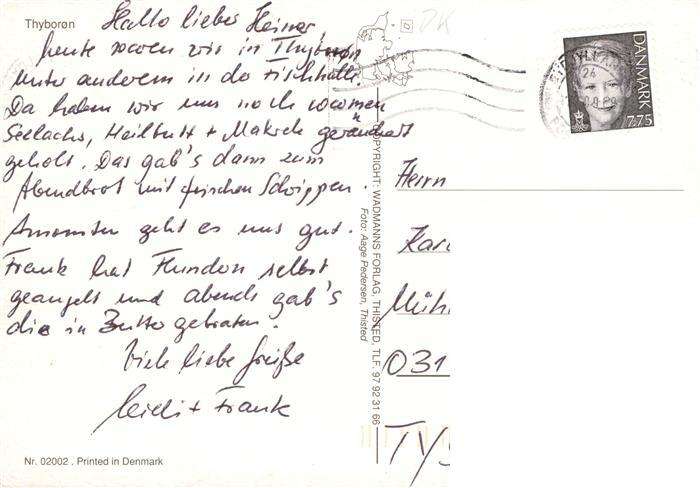 Thyborøn
Hallo lieber Heiner
heute waren wir in Thyborøn
unter anderem in de Fischhalle.
Da haben wir uns noch warmen
Seelachs, Heilbutt + Makrele geräuchert
geholt. Das gab's dann zum
Abendbrot mit frischen Schrippen.
Ansonsten geht es uns gut.
Frank hat Flundern selbst
geangelt und abends gab's
die in Butter gebraten.
Viele liebe Grüße
Heidi + Frank
Nr. 02002 . Printed in Denmark
COPYRIGHT: WADMANNS FORLAG, THISTED, TLF. 97 92 31 66
Foto: Aage Pedersen, Thisted
DK
DANMARK
7.75
Herrn
Kar
Müh
031
TYS